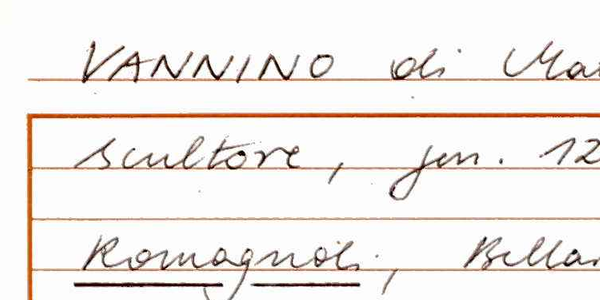 VANNINO di
scultore, gen. 12
Romagnoli,